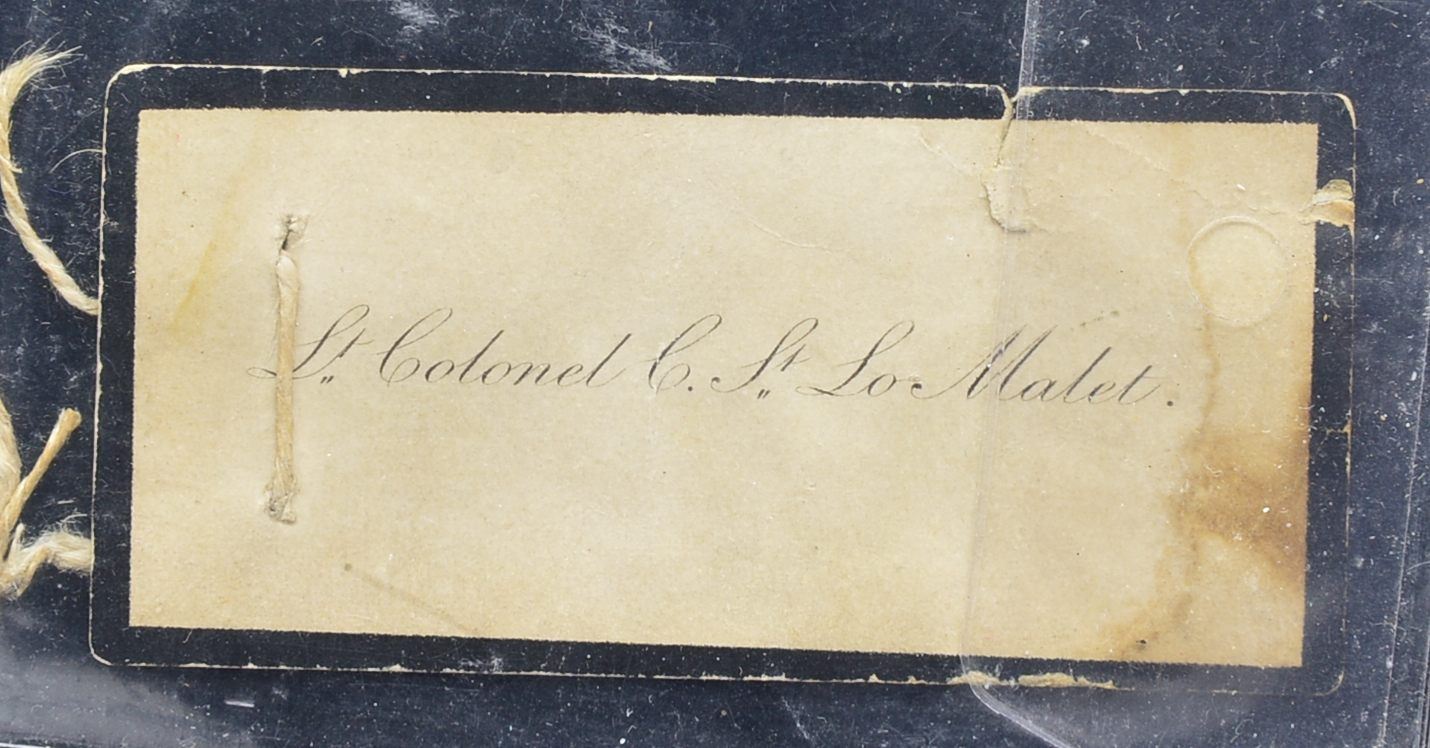 Lt,, Colonel C. St,, Lo Malet.